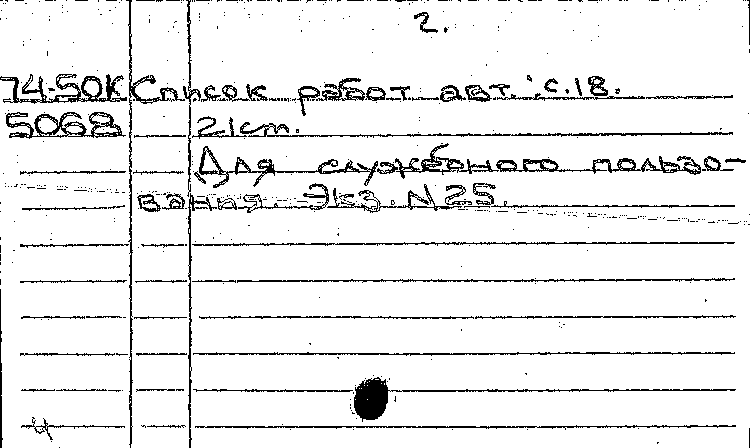 2.
74-50К Список работ авт.: с.18.
5068 21 cm.
Для служебного пользо-
вания. Экз. N 25.
4